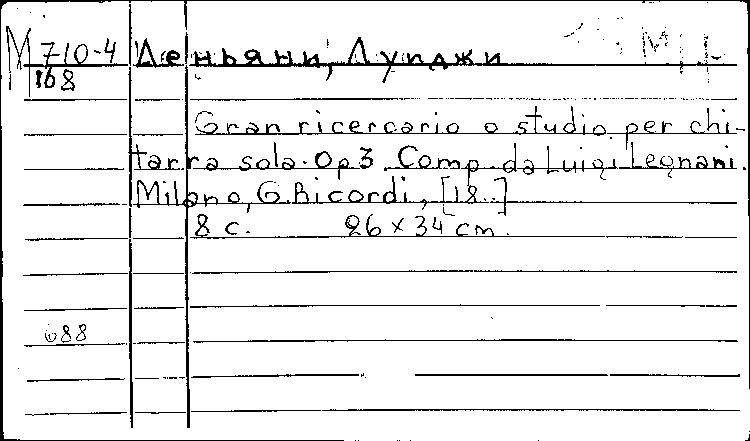 М 710-4 Леньяни, Луиджи
168
Gran ricercario o studio per chi-
tarra sola. Op 3. Comp. da Luigi Legnani.
Milano, G. Ricordi, [18..]
8 c. 26 × 34 cm.
688